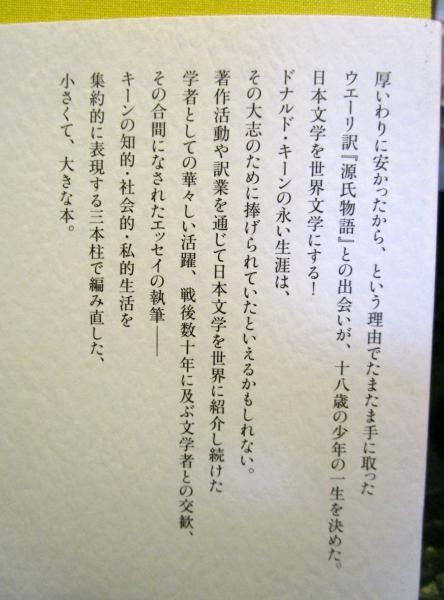 厚いわりに安かったから、という理由でたまたま手に取った
ウエーリ訳『源氏物語』との出会いが、十八歳の少年の一生を決めた。
日本文学を世界文学にする！
ドナルド・キーンの永い生涯は、
その大志のために捧げられていたといえるかもしれない。
著作活動や訳業を通じて日本文学を世界に紹介し続けた
学者としての華々しい活躍、戦後数十年に及ぶ文学者との交歓、
その合間になされたエッセイの執筆――
キーンの知的・社会的・私的生活を
集約的に表現する三本柱で編み直した、
小さくて、大きな本。